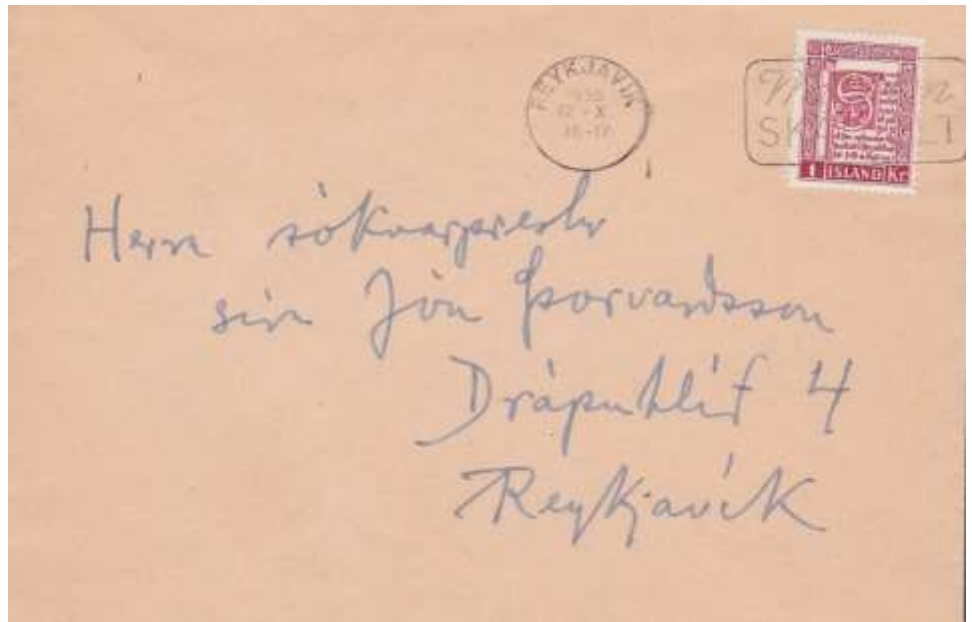 REYKJAVÍK
X
16-17
1 ÍSLAND Kr
Herra sóknarprestur
síra Jón Þorvarðsson
Drápuhlíð 4
Reykjavík